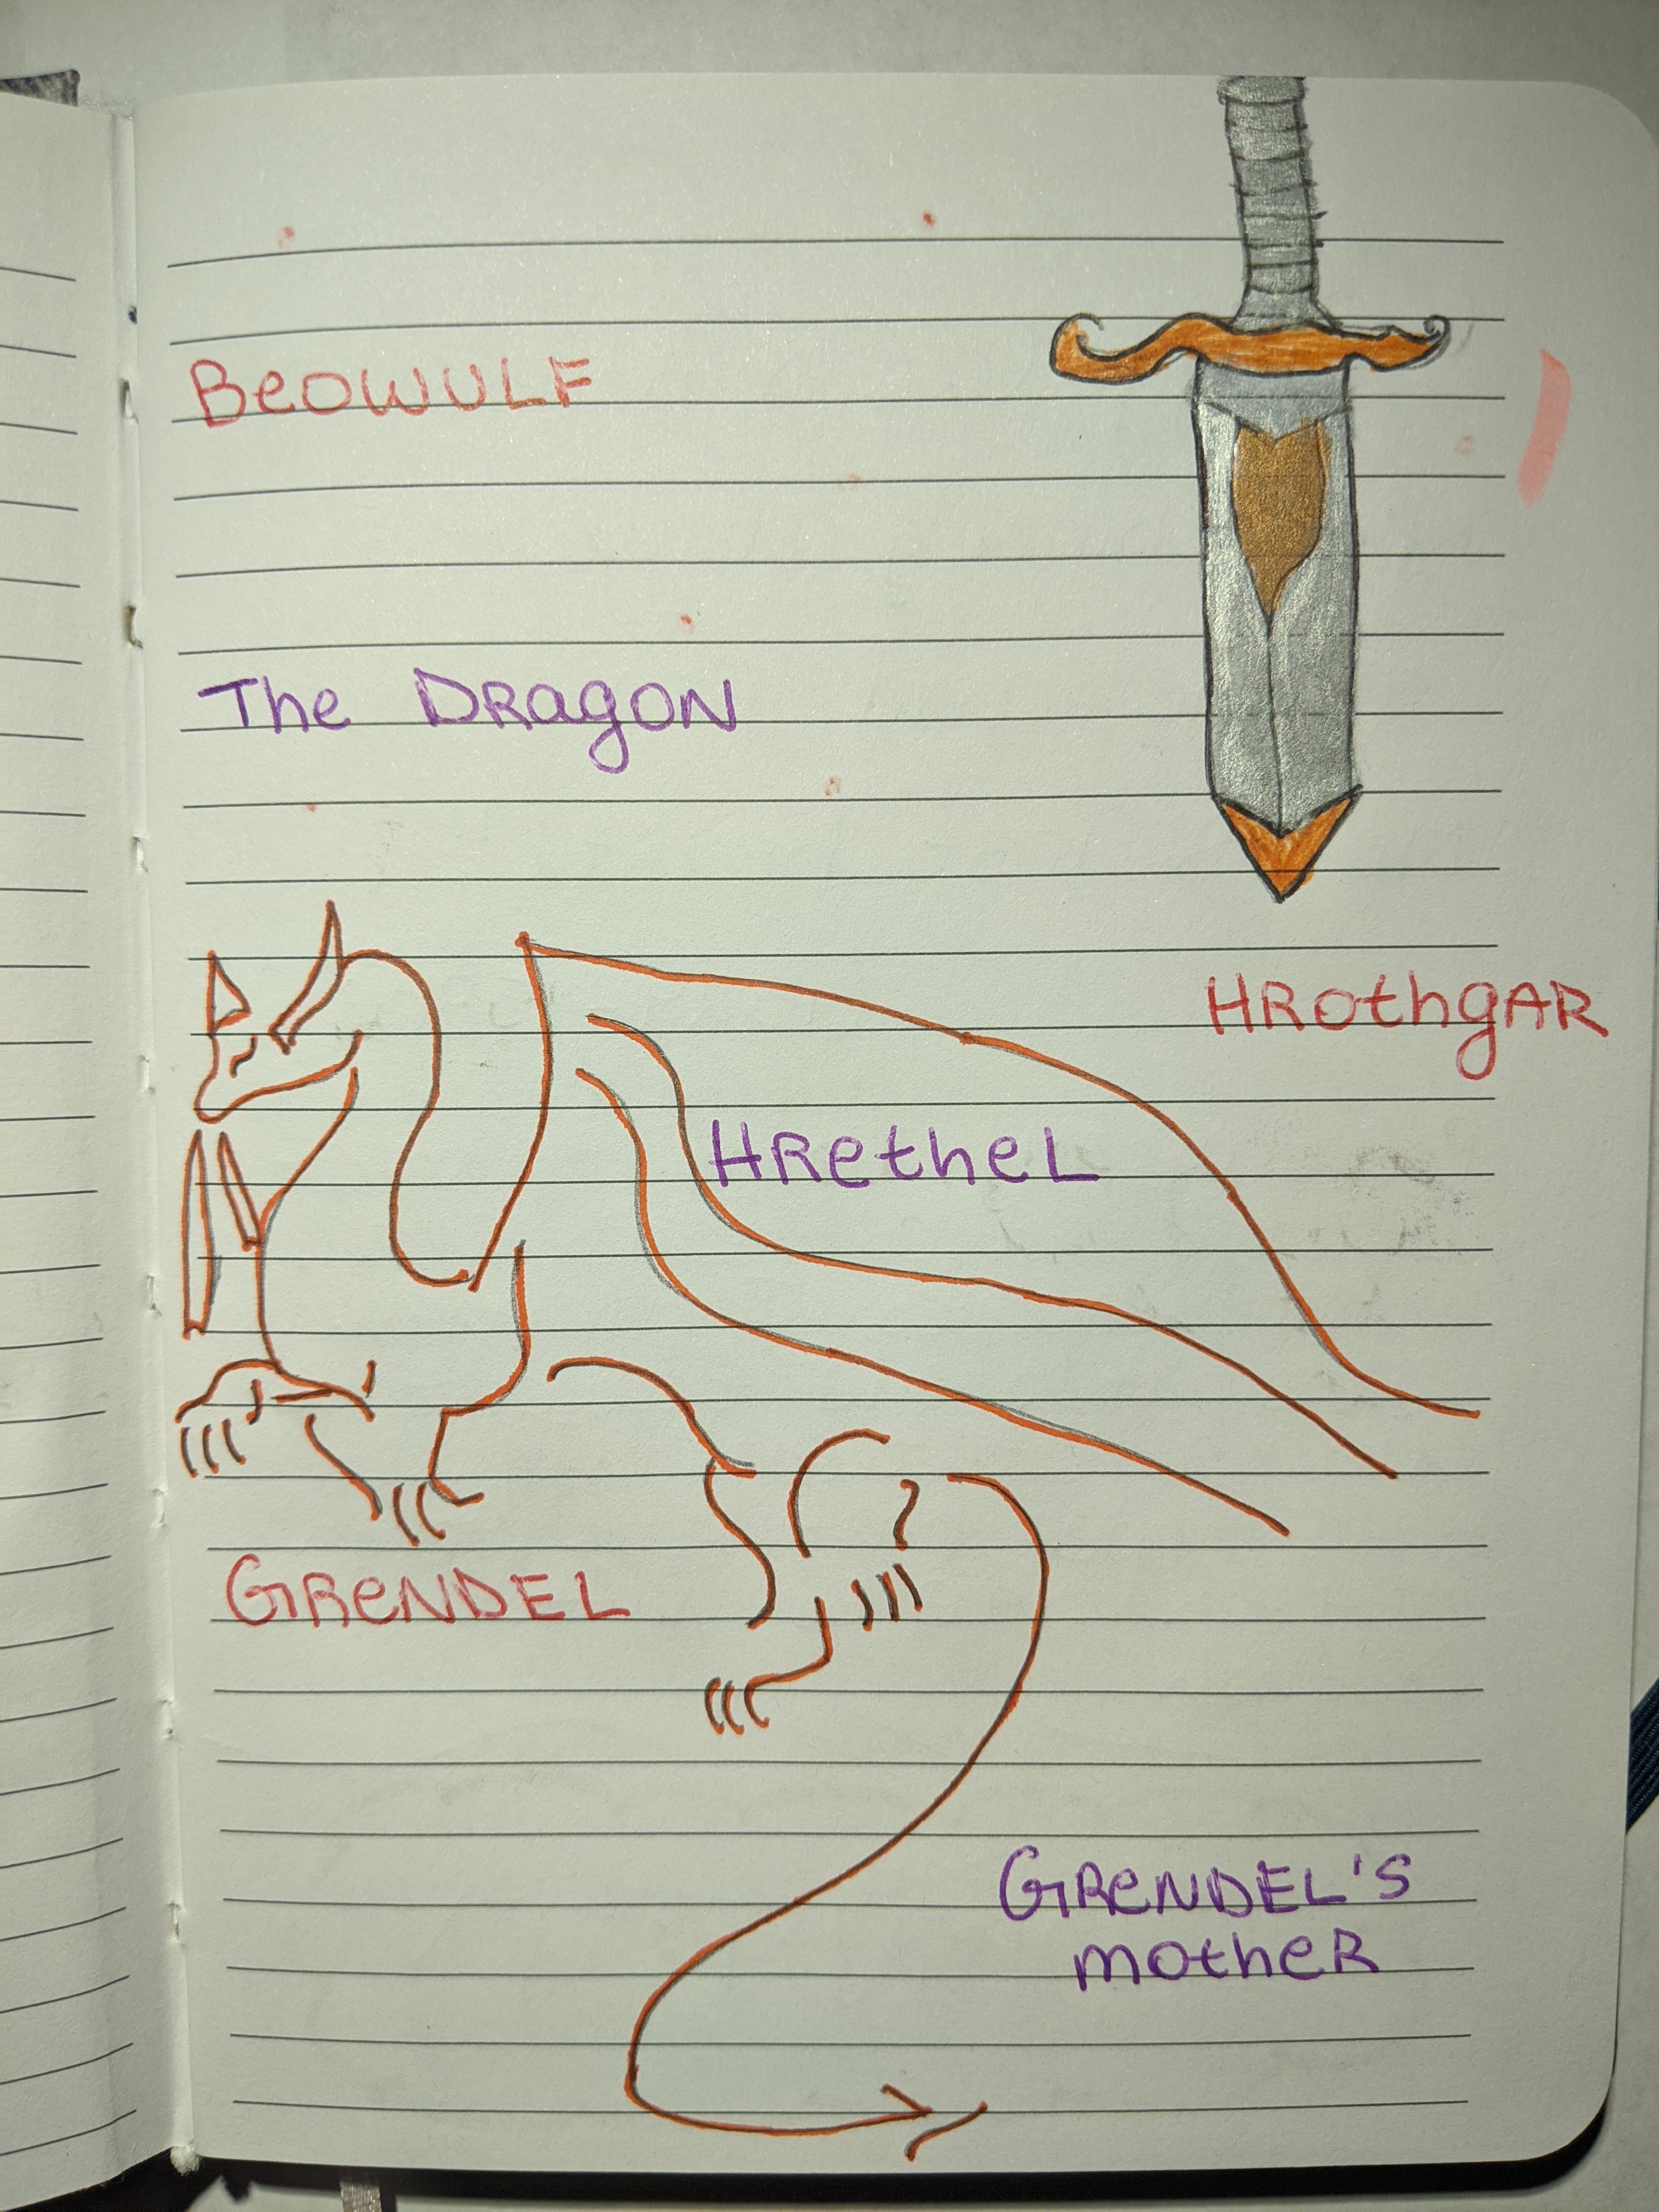 BeOWULF
The DRagON
HROthgAR
HRetheL
GReNDEL
GReNDEL'S
motheR